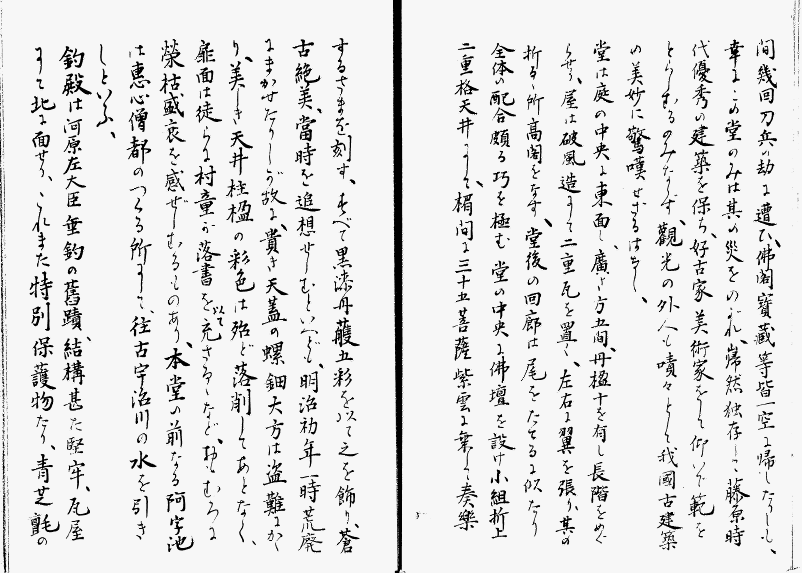 間幾回刀兵の劫に遭ひ、佛閣寶藏等皆一空に帰したりしも、
幸にこの堂のみは其の災をのがれ、巋然独存して藤原時
代優秀の建築を保ち、好古家美術家をして仰いで範を
とらしむるのみならず、觀光の外人も嘖々として我國古建築
の美妙に驚嘆せざるはなし、
堂は庭の中央に東面し、廣さ方五間、丹楹十を有し長階をめぐ
らせり、屋は破風造にして二重瓦を置く、左右に翼を張り、其の
折るゝ所高閣をなす、堂後の回廊は尾をたるゝに似たり
全体の配合頗る巧を極む 堂の中央に佛壇を設け小組折上
二重格天井にして、楣間に三十五菩薩紫雲に乗じて奏樂
するさまを刻す、すべて黒漆丹雘五彩を以て之を飾り、蒼
古絶美、當時を追想せしむといへども、明治初年一時荒廃
にまかせたりしが故に、貴き天蓋の螺鈿大方は盗難にかゝ
り、美しき天井柱楹の彩色は殆ど落削してあとなく、
扉面は徒らに村童が落書を以て充さるゝなど、そゞろに
榮枯盛衰を感ぜしむるものあり、本堂の前なる阿字池
は惠心僧都のつくる所にして、往古宇治川の水を引き
しといふ、
釣殿は河原左大臣垂釣の舊蹟、結構甚だ堅牢、瓦屋
にして北に面せり、これまた特別保護物たり、青芝氈の